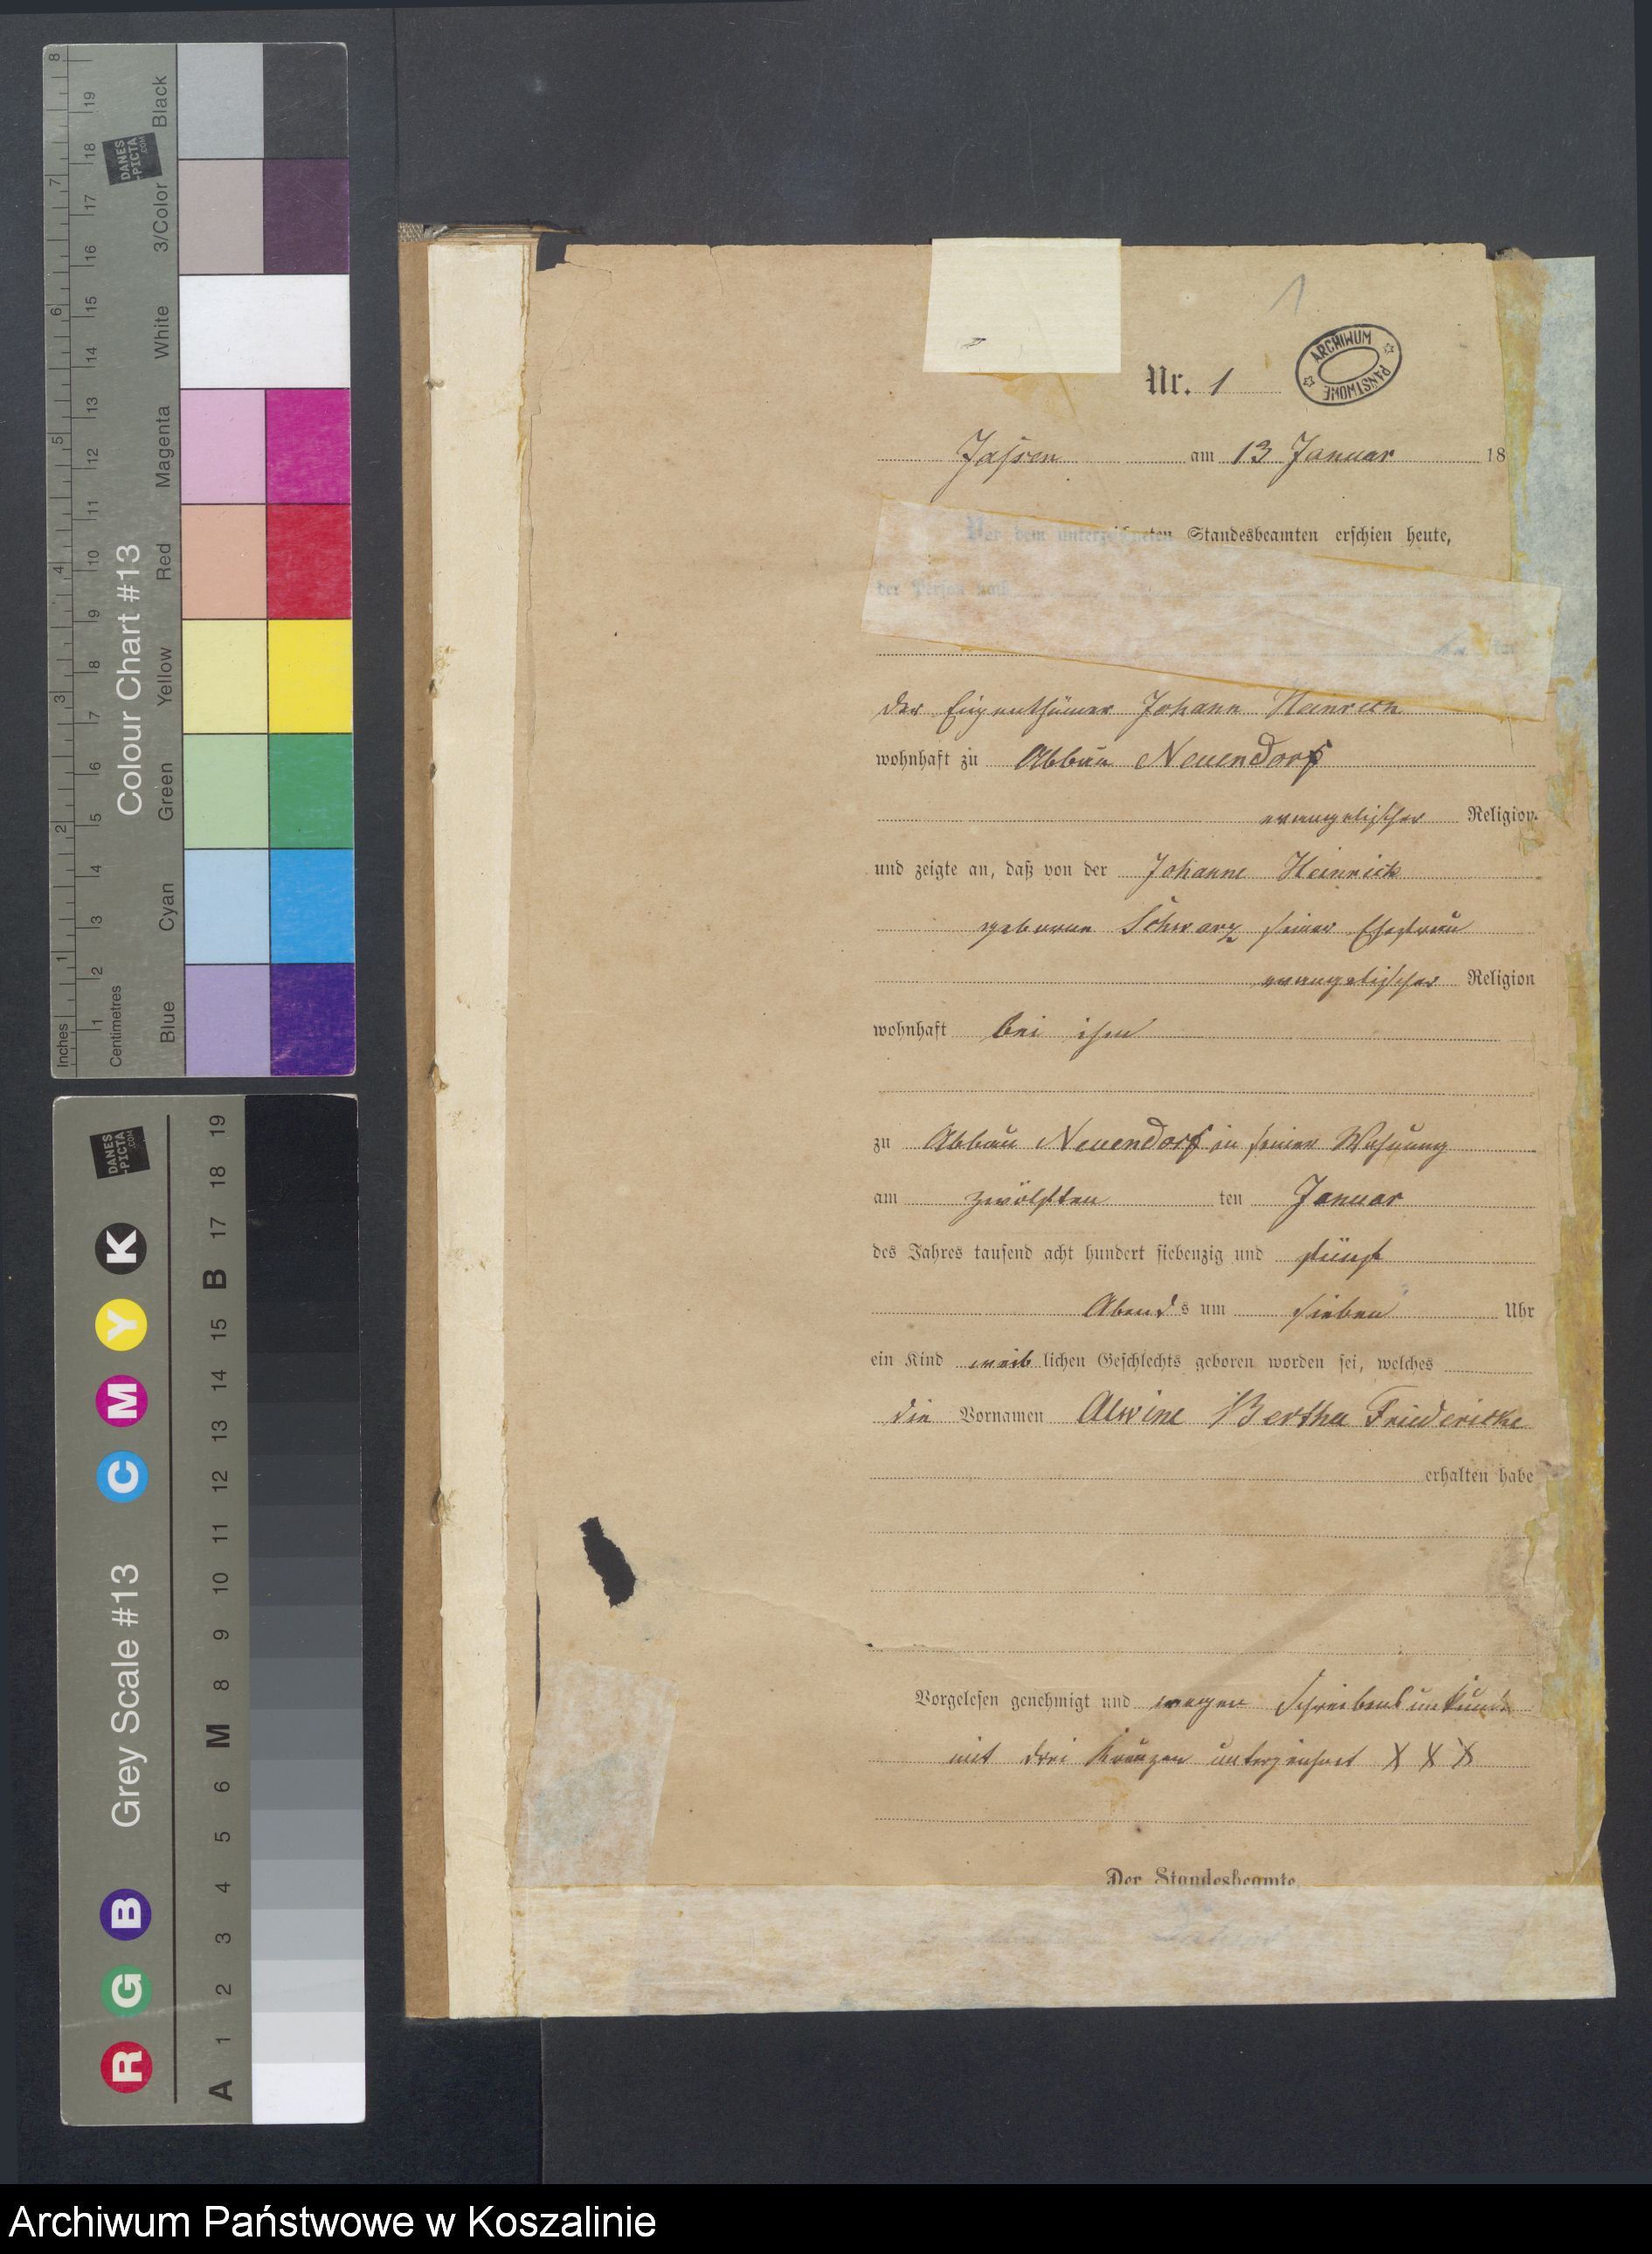 8
19
Black
DANES
-PICTA
.COM
18
7
17
3/Color
16
6
15
White
14
13
Magenta
5
12
11
Red
10
4
9
Colour Chart #13
8
Yellow
3
7
6
Green
5
2
4
Cyan
3
1
2
1
Blue
Inches
Centimetres
1
Nr. 1
ARCHIWUM
PAŃSTWOWE
Jassen am 13 Januar 18
Vor dem unterzeichneten Standesbeamten erschien heute,
der Person nach
der Eigenthümer Johann Heinrich
wohnhaft zu Abbau Neuendorf
evangelischer Religion
und zeigte an, daß von der Johanne Heinrich
geborene Schwarz seiner Ehefrau
evangelischer Religion
wohnhaft bei ihm
zu Abbau Neuendorf in seiner Wohnung
am zwölften ten Januar
des Jahres tausend acht hundert siebenzig und fünf
Abends um sieben Uhr
ein Kind weiblichen Geschlechts geboren worden sei, welches
die Vornamen Alwine Bertha Friedericke
erhalten habe
Vorgelesen genehmigt und wegen Schreibensunkunde
mit drei Kreuzen unterzeichnet X X X
Der Standesbeamte.
DANES
-PICTA
.COM
19
18
K
17
B
Y
15
14
M
13
C
12
11
10
Grey Scale #13
9
8
M
6
5
B
4
3
G
2
1
R
A
Archiwum Państwowe w Koszalinie